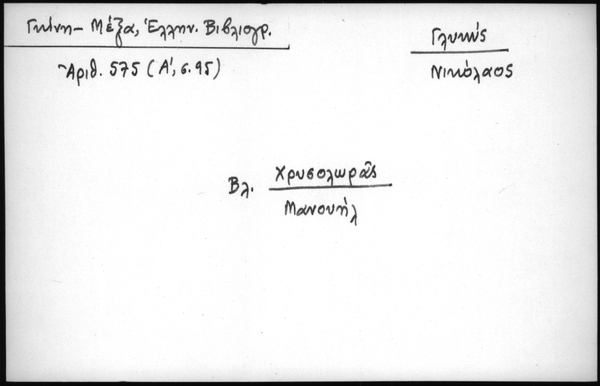 Γκίνη - Μέξα, Ἑλλην. Βιβλιογρ.
Ἀριθ. 575 (Α', σ. 95)
Γλυκύς
Νικόλαος
Βλ. Χρυσολωρᾶς
Μανουήλ